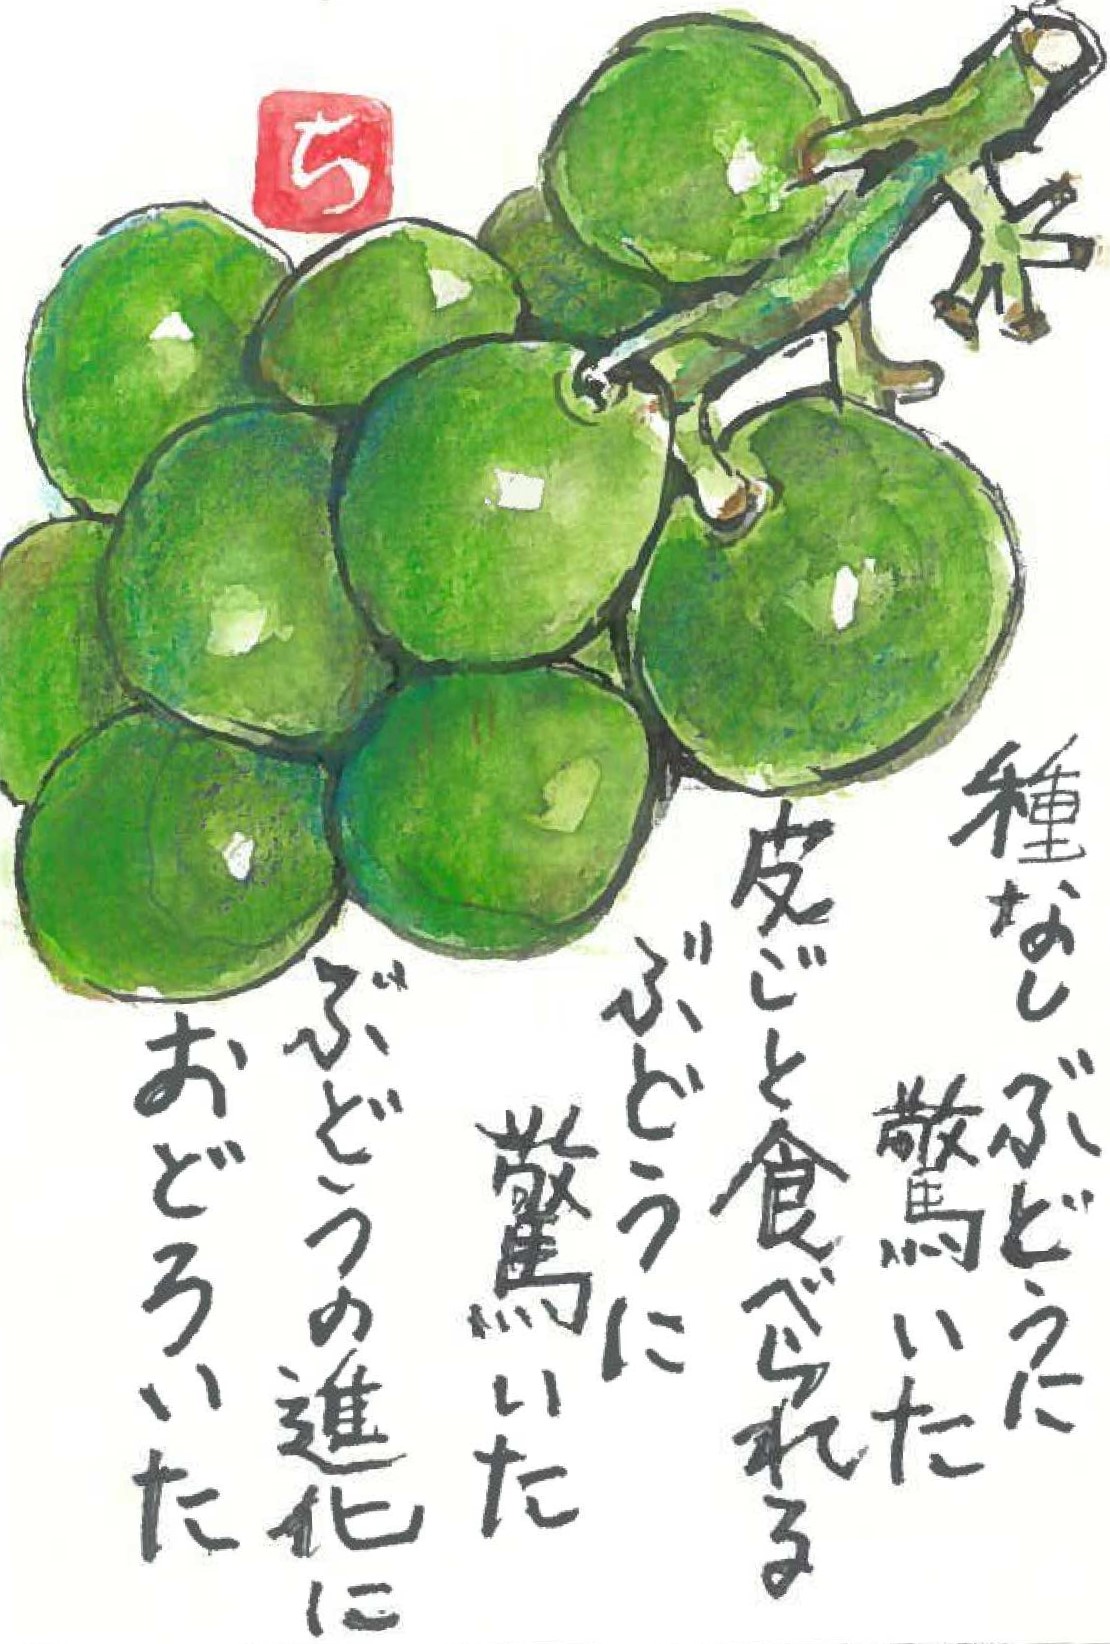 種なしぶどうに
驚いた
皮ごと食べられる
ぶどうに
驚いた
ぶどうの進化に
おどろいた
ち